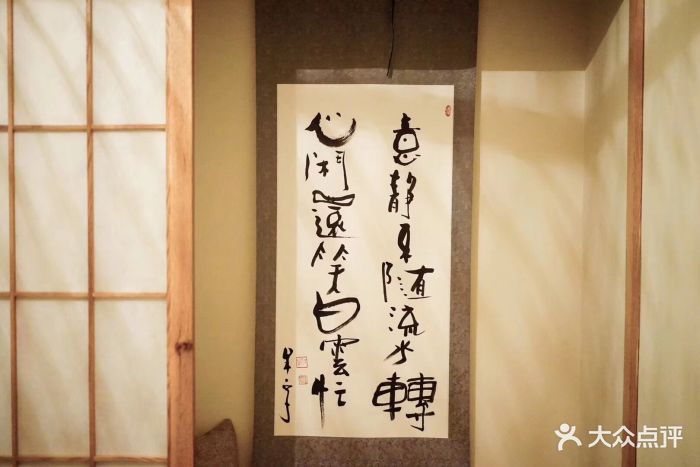 意静不随流水轉
心闲還笑白雲忙
大众点评